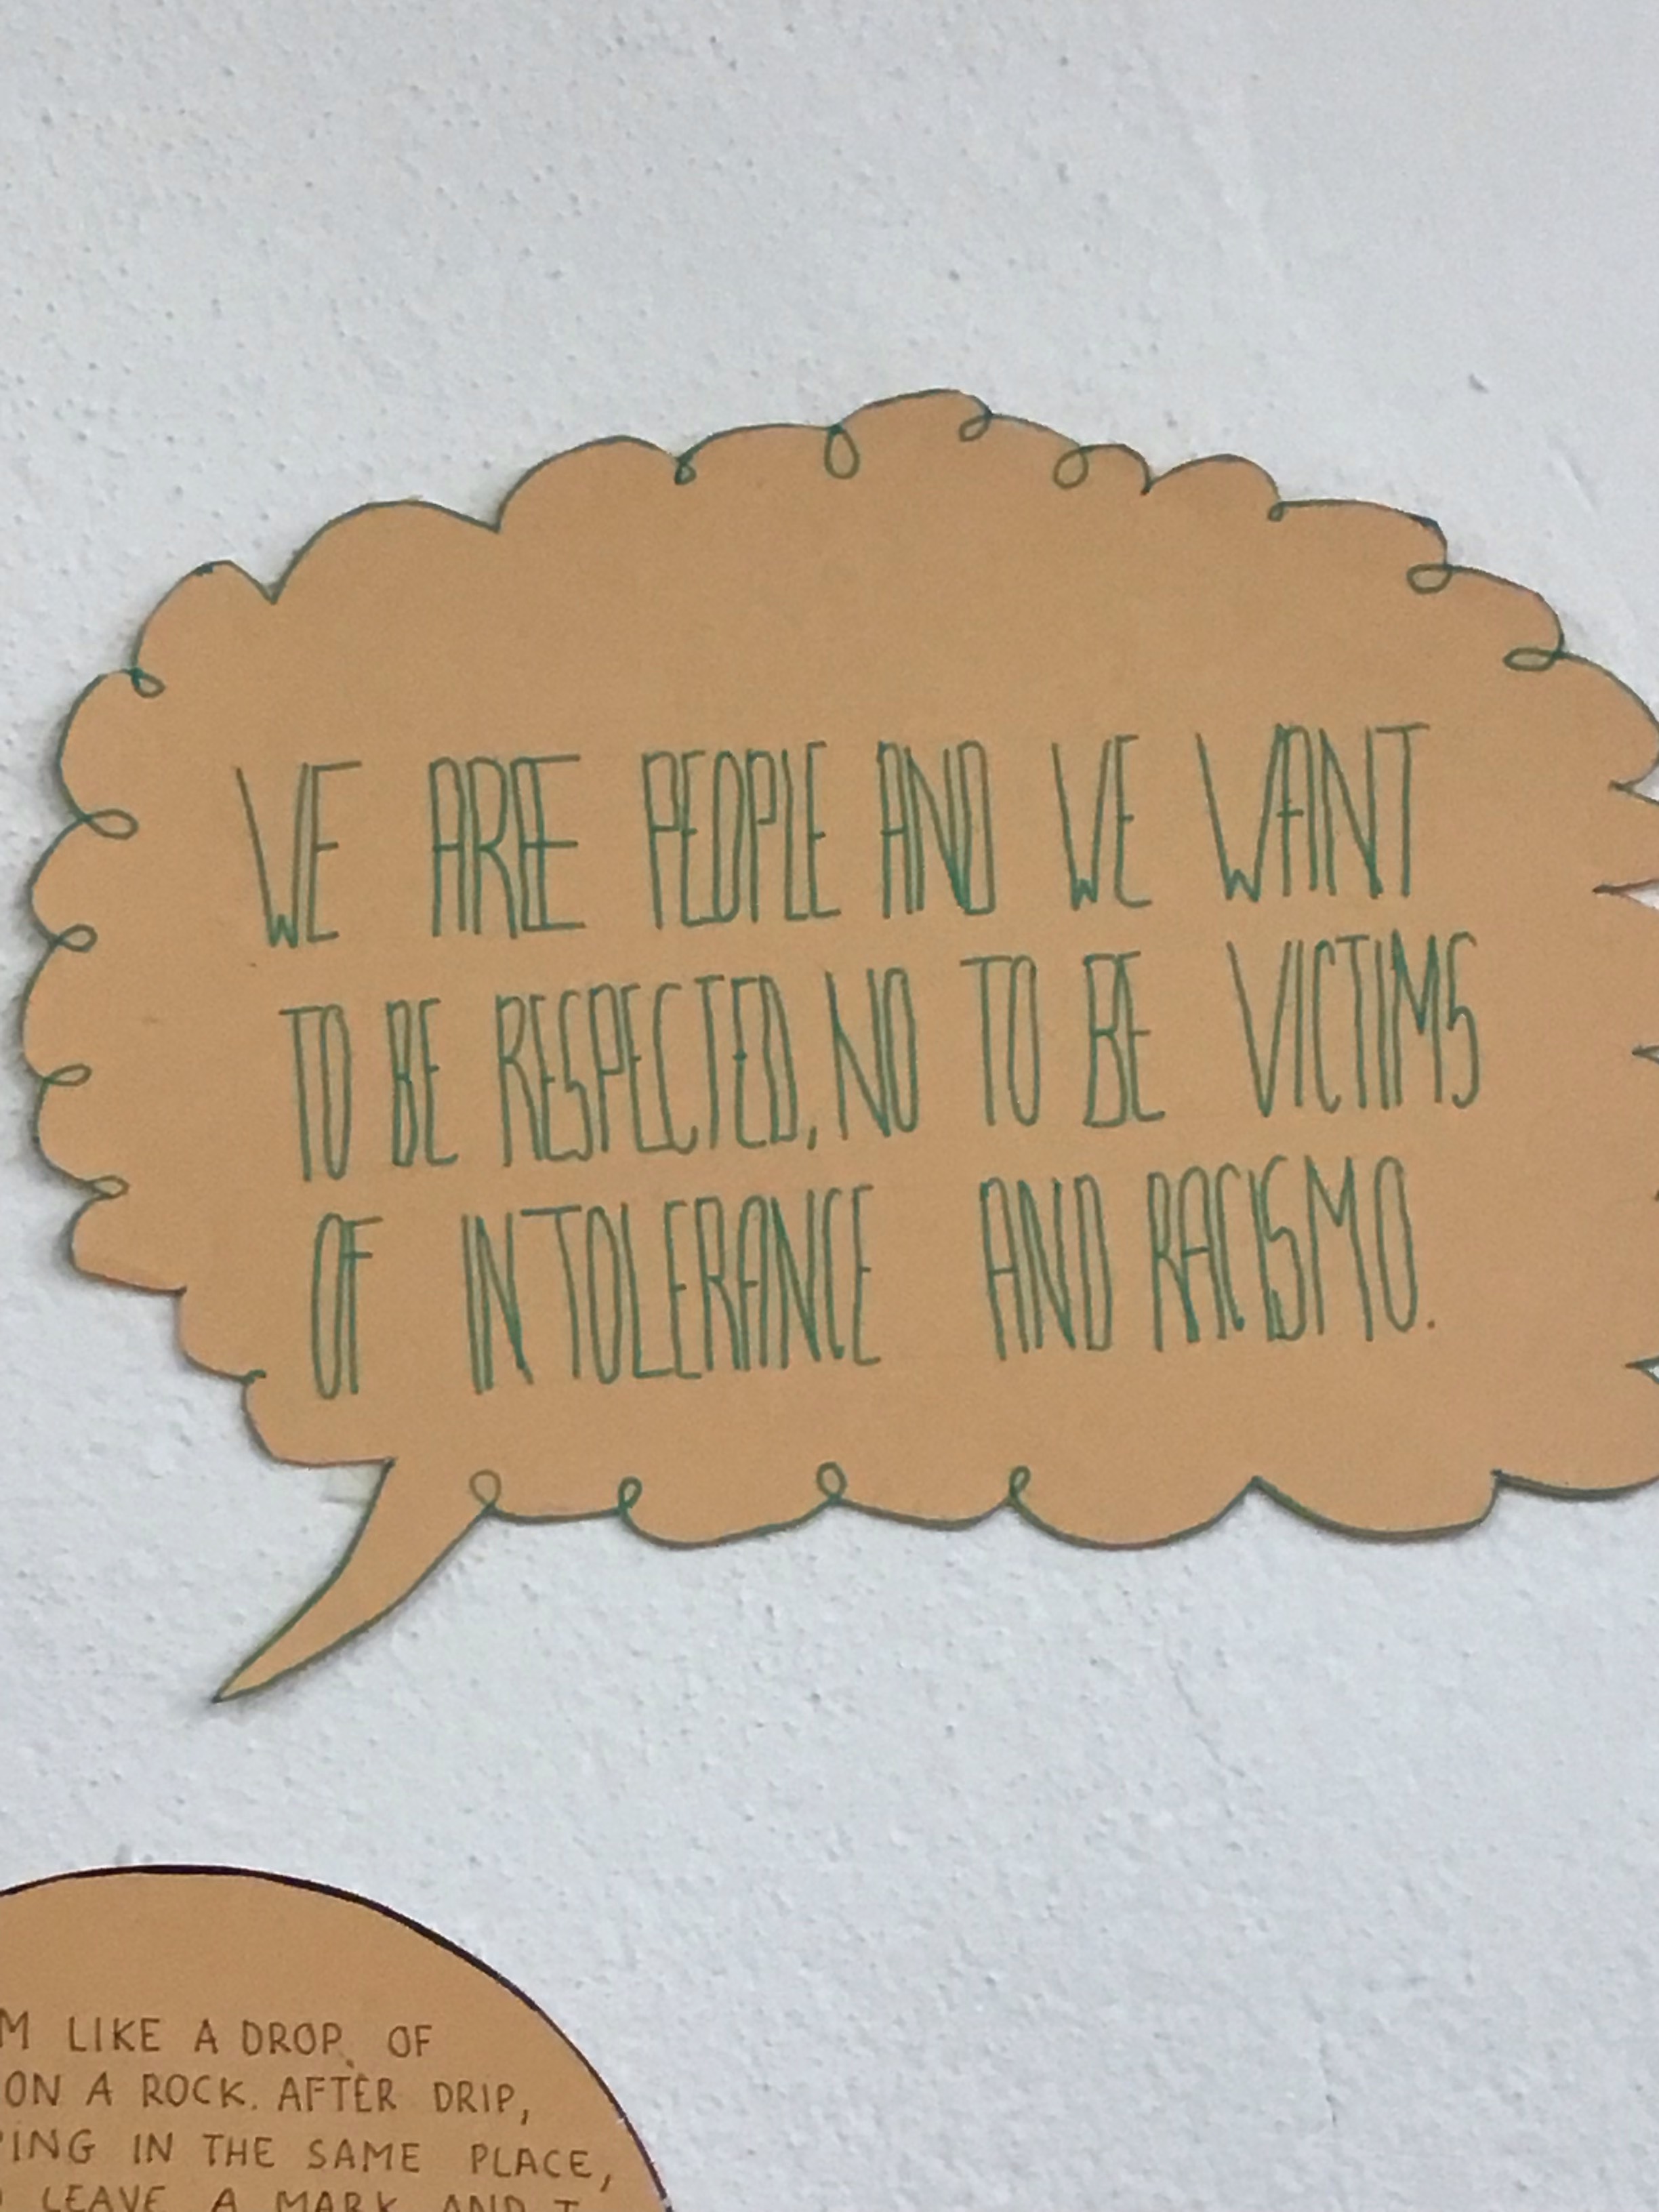 WE ARE PEOPLE AND WE WANT
TO BE RESPECTED, NO TO BE VICTIMS
OF INTOLERANCE AND RACISMO.
M LIKE A DROP OF
ON A ROCK. AFTER DRIP,
PING IN THE SAME PLACE,
LEAVE A MARK AND I